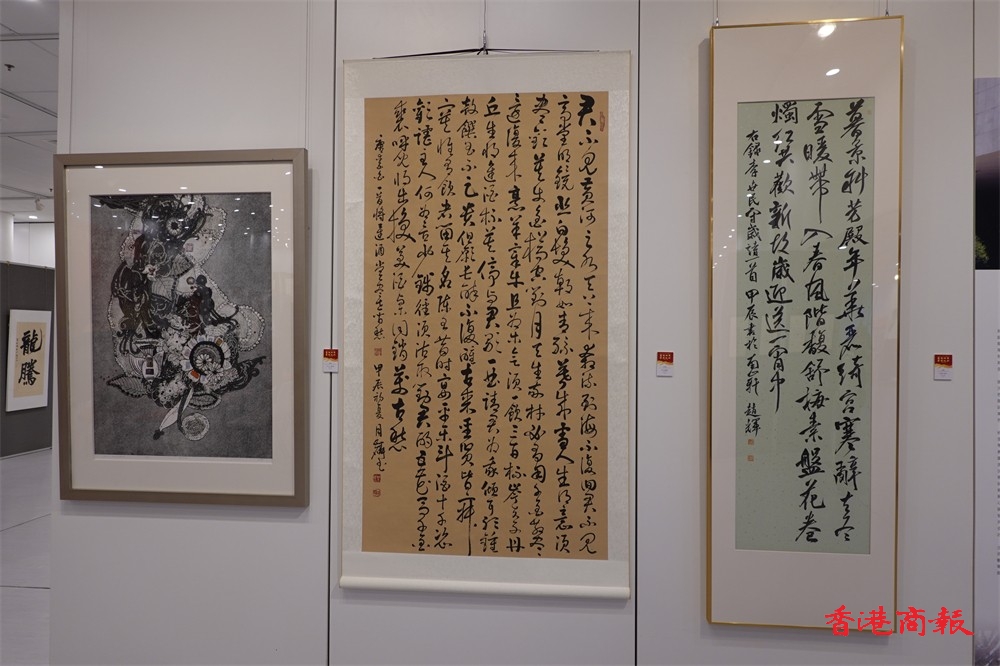 龍騰
君不見黃河之水天上來奔流到海不復回君不見
高堂明鏡悲白髮朝如青絲暮成雪人生得意須
盡歡莫使金樽空對月天生我材必有用千金散盡
還復來烹羊宰牛且為樂會須一飲三百杯岑夫子丹
丘生將進酒杯莫停與君歌一曲請君為我傾耳聽鐘
鼓饌玉不足貴但願長醉不復醒古來聖賢皆寂
寞惟有飲者留其名陳王昔時宴平樂斗酒十千恣
歡謔主人何為言少錢徑須沽取對君酌五花馬千金
裘呼兒將出換美酒與爾同銷萬古愁
甲辰初夏月
暮景斜芳殿年華麗綺宮寒辭去冬
雪暖帶入春風階馥舒梅素盤花卷
燭紅共歡新故歲迎送一宵中
古錄李世民守歲詩一首 甲辰書於 軒 趙輝
香港商報